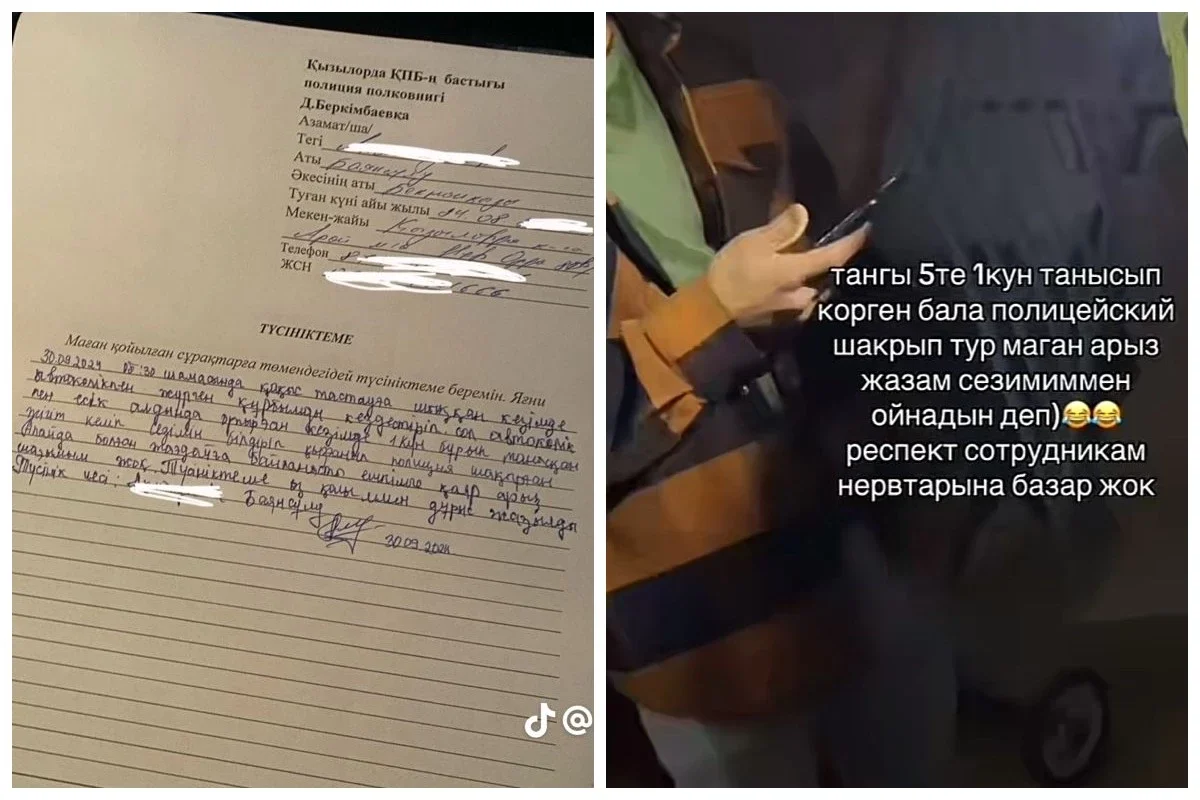 Қызылорда ҚПБ-ң бастығы
полиция полковнигі
Д.Беркімбаевқа
Азамат/ша/
Тегі
Аты Баянсұлу
Әкесінің аты
Туған күні айы жылы 24.08
Мекен-жайы Қызылорда қ-ла
Арай
Телефон 8
ЖСН
ТҮСІНІКТЕМЕ
Маған қойылған сұрақтарға төмендегідей түсініктеме беремін. Яғни
30.09.2024 :30 шамасында қоқыс тастауға шыққан кезімде
автокөлікпен жүрген құрбымды кездестіріп сол автокөлік
пен есік алдында отырған кезімде 1 күн бұрын танысқан
жігіт келіп сезімін білдіріп полиция шақырған
Алайда болған жағдайға байланысты ешкімге қазір арыз
шағымым жоқ. Түсініктеме өз қолыммен дұрыс жазылды
Түсінік иесі: Баянсұлу
30.09.2024
таңгы 5те 1кун танысып
корген бала полицейский
шакрып тур маган арыз
жазам сезимиммен
ойнадын деп)😂😂
респект сотрудникам
нервтарына базар жок